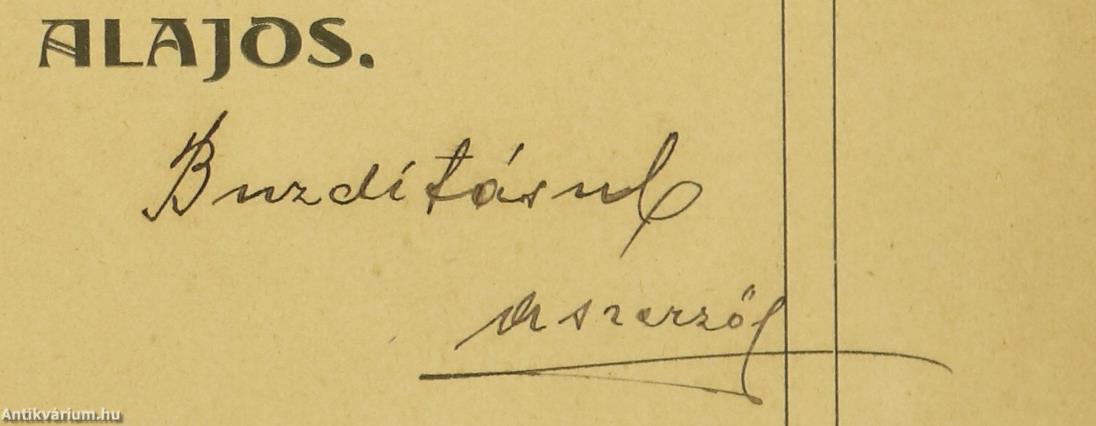 ALAJOS.
Buzdításul
a szerzőł
Antikvárium.hu